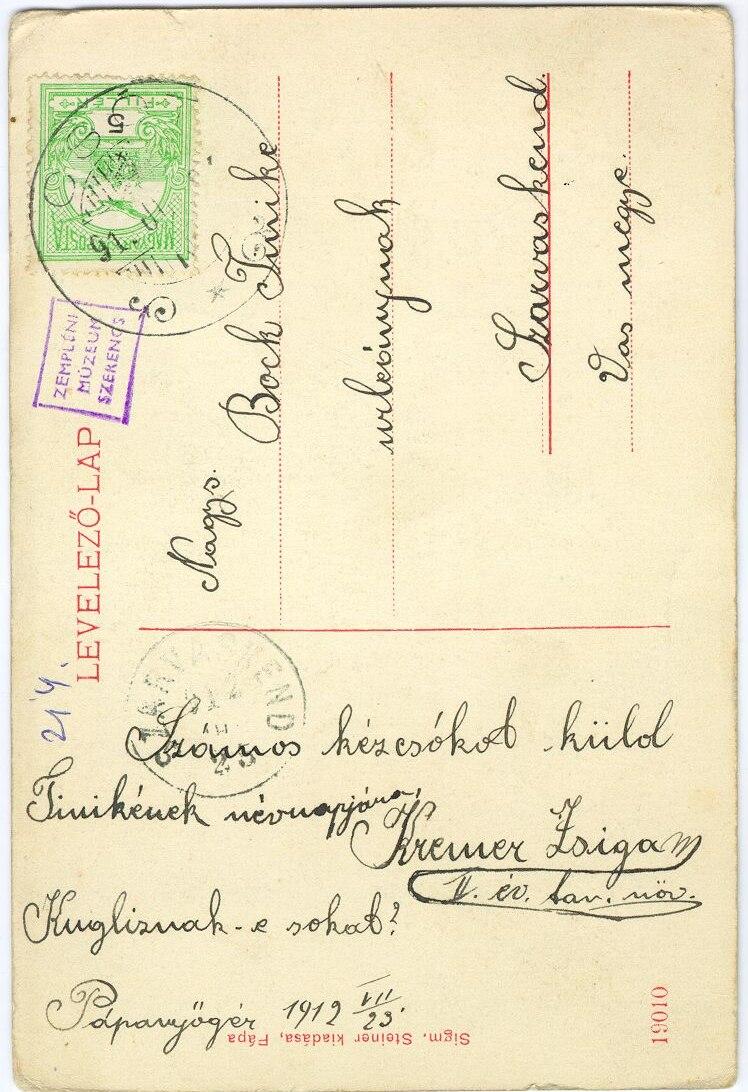 MAGYAR POSTA
5
FILLER
ZEMPLÉNI
MÚZEUM
SZERENCS
LEVELEZŐ-LAP
214.
Nagys.
Bock Tinike
urleánynak
Szarvaskend.
Vas megye.
SZARVASKEND
Számos kézcsókot küld
Tinikének névnapjára,
Kremer Zsiga
II. év. tan. növ.
Kugliznak-e sokat?
Pápanyőgér 1912 VII/23.
Sigm. Steiner kiadása, Pápa
19010